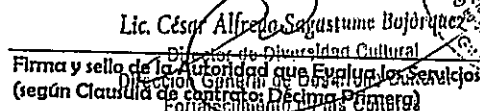 Lic. César Alfredo Sagastume Bojórquez
Director de Diversidad Cultural
Firma y sello de la Autoridad que Evalua los Servicios
Dirección General de
(según Clausula de contrato: Décima Primera)
Fortalecimiento